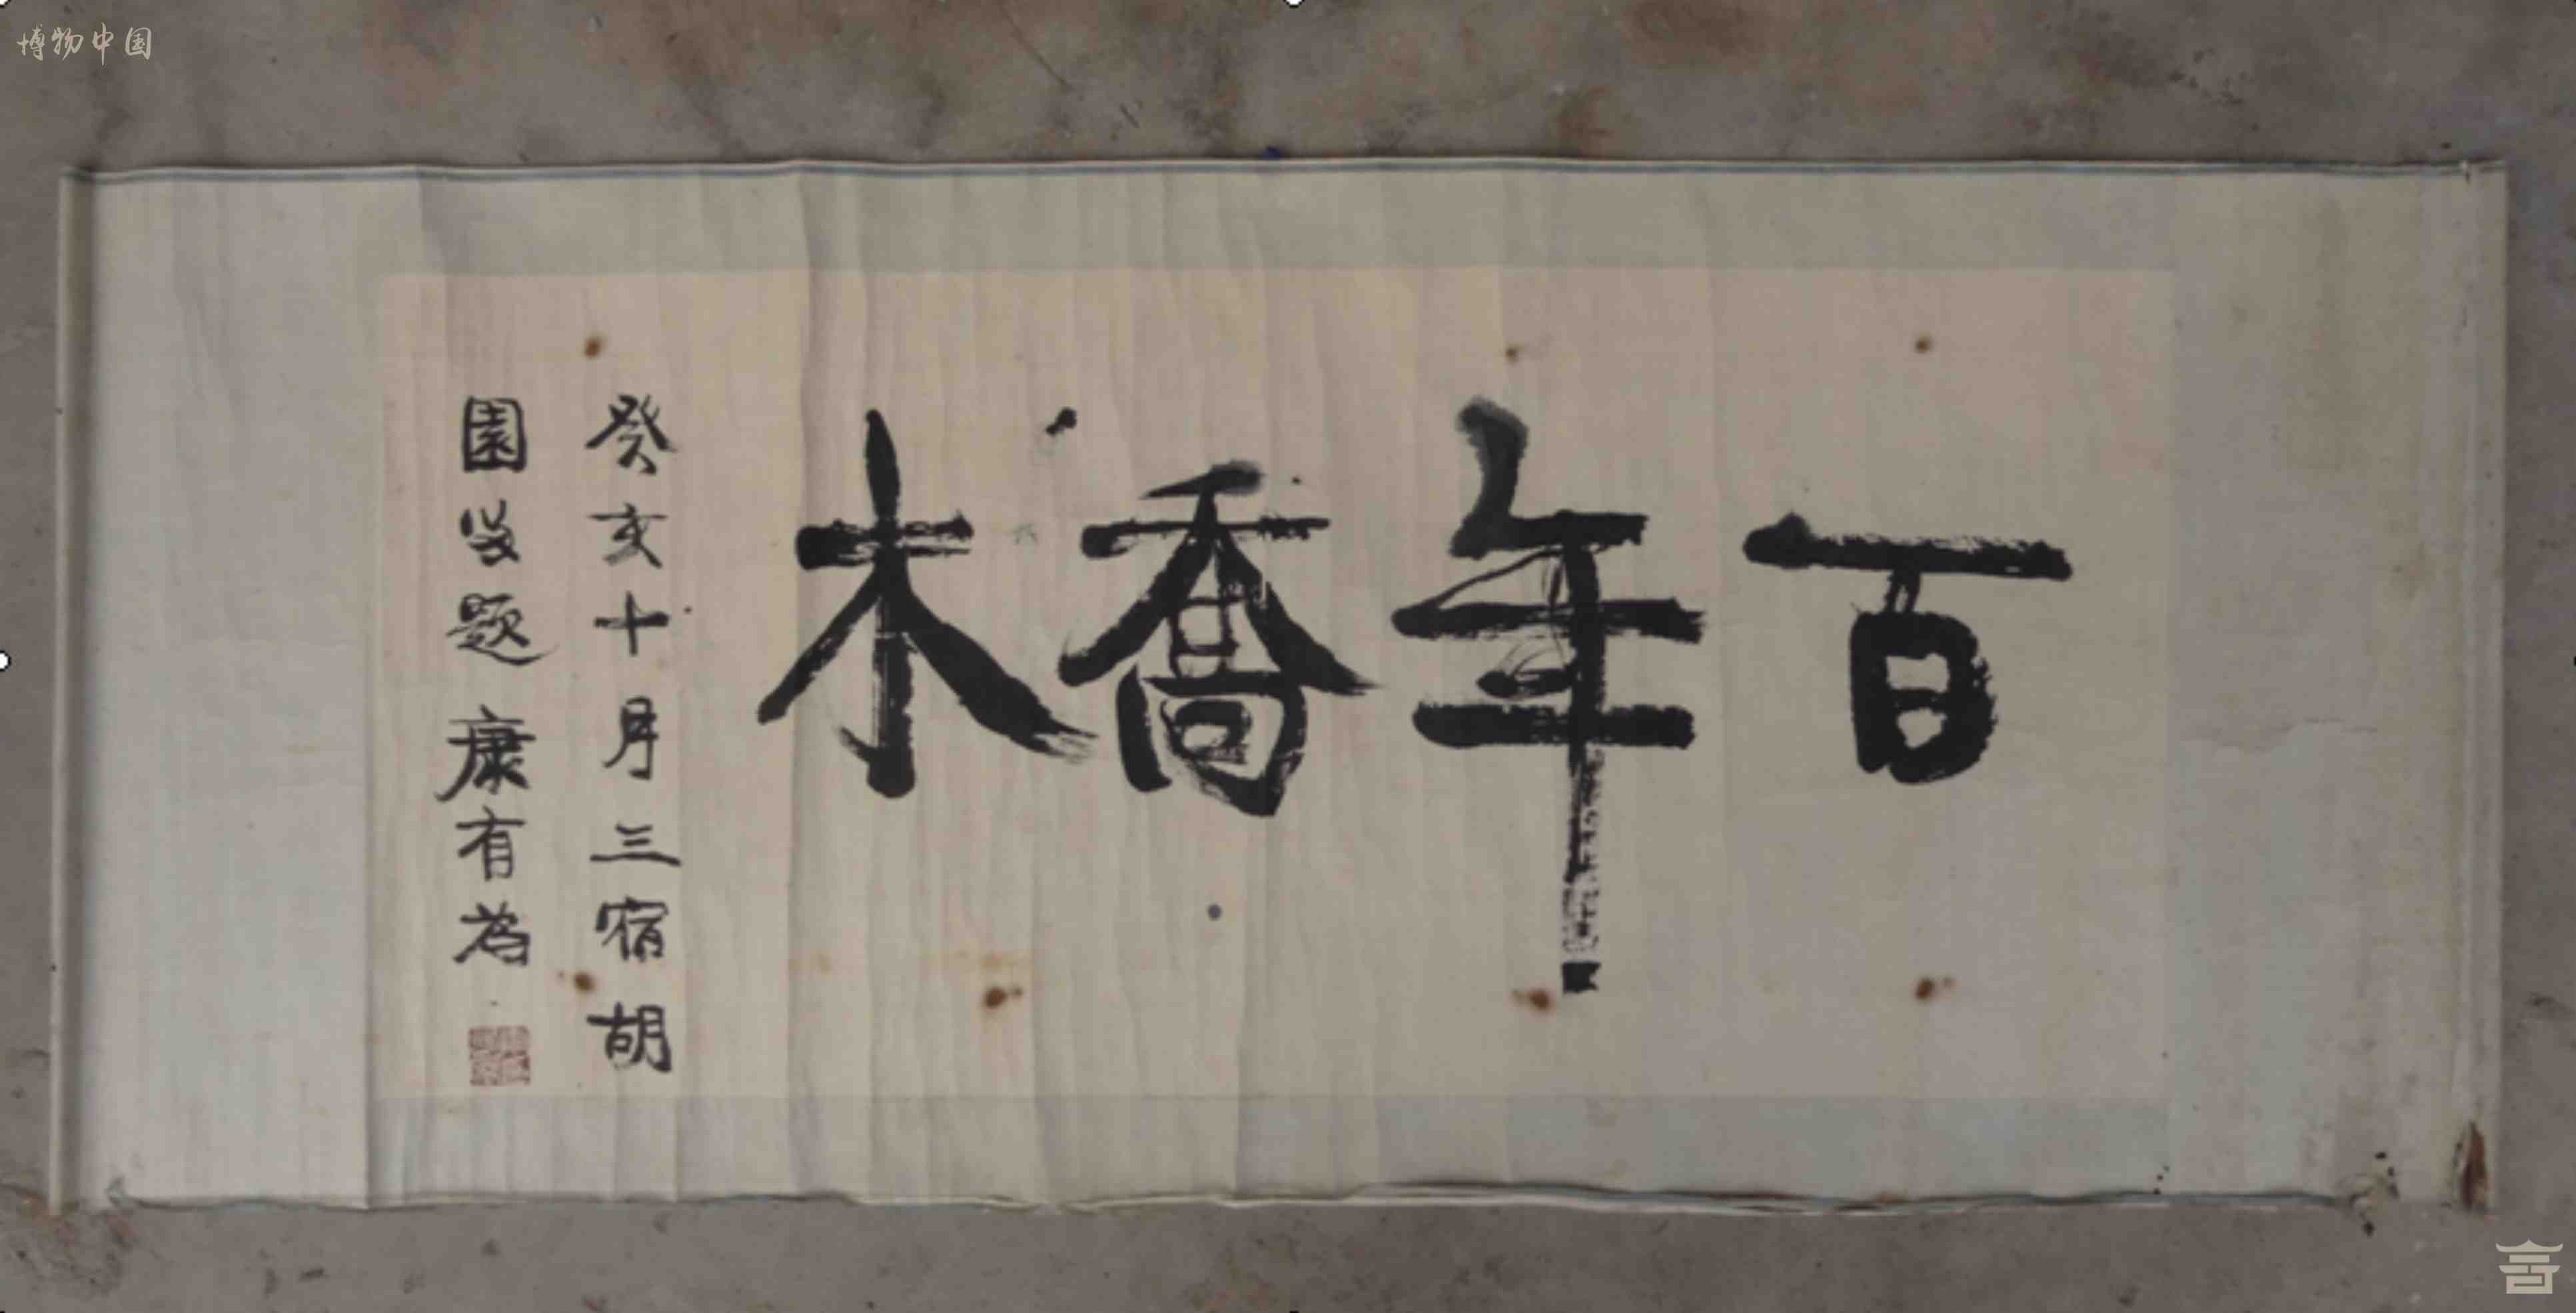 博物中国
百年喬木
癸亥十月三宿胡
園㕥题 康有為